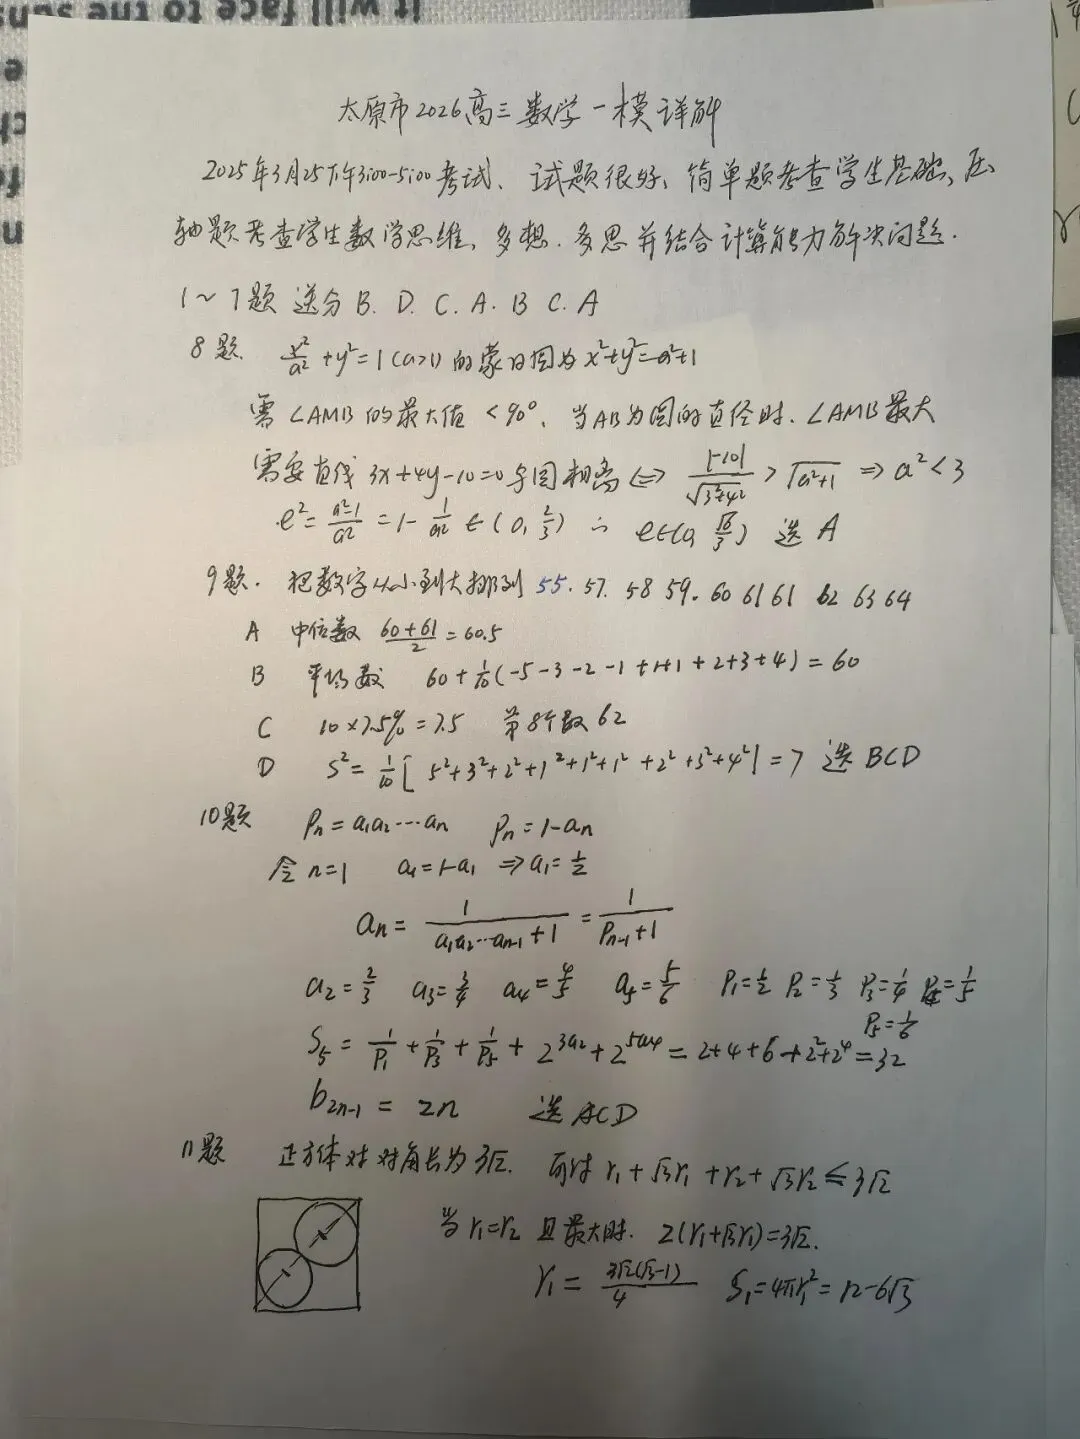 it will face to the suns
太原市2026高三数学一模详解
2025年3月25下午3:00-5:00考试、试题很好、简单题考查学生基础、压
轴题考查学生数学思维、多想、多思并结合计算能力解决问题.
1~7题 送分 B. D. C. A. B C. A
8题. x²/a²+y²=1(a>1)的蒙日圆为x²+y²=a²+1
需∠AMB的最大值<90°、当AB为圆的直径时.∠AMB最大
需要直线3x+4y-10=0与圆相离⇔|-10|/√(3²+4²)>√(a²+1)⇒a²<3
e²=(a²-1)/a²=1-1/a²∈(0,2/3)∴e∈(0,√6/3) 选A
9题. 把数字从小到大排列 55. 57. 58 59. 60 61 61 62 63 64
A 中位数 (60+61)/2=60.5
B 平均数 60+1/10(-5-3-2-1+1+1+2+3+4)=60
C 10×75%=7.5 第8个数62
D S²=1/10[5²+3²+2²+1²+1²+1²+2²+3²+4²]=7 选BCD
10题 Pn=a₁a₂⋯an Pn=1-an
令n=1 a₁=1-a₁⇒a₁=1/2
an=1/(a₁a₂⋯an-1+1)=1/(Pn-1+1)
a₂=2/3 a₃=3/4 a₄=4/5 a₅=5/6 P₁=1/2 P₂=1/3 P₃=1/4 P₄=1/5
P₅=1/6
S₅=1/P₁+1/P₃+1/P₅+2^(3a₂)+2^(5a₄)=2+4+6+2²+2⁴=32
b2n-1=2n 选ACD
11题 正方体对对角长为3√2. 而对r₁+√3r₁+r₂+√3r₂≤3√2
当r₁=r₂且最大时. 2(r₁+√3r₁)=3√2.
r₁=3√2(√3-1)/4 S₁=4πr₁²=12-6√3